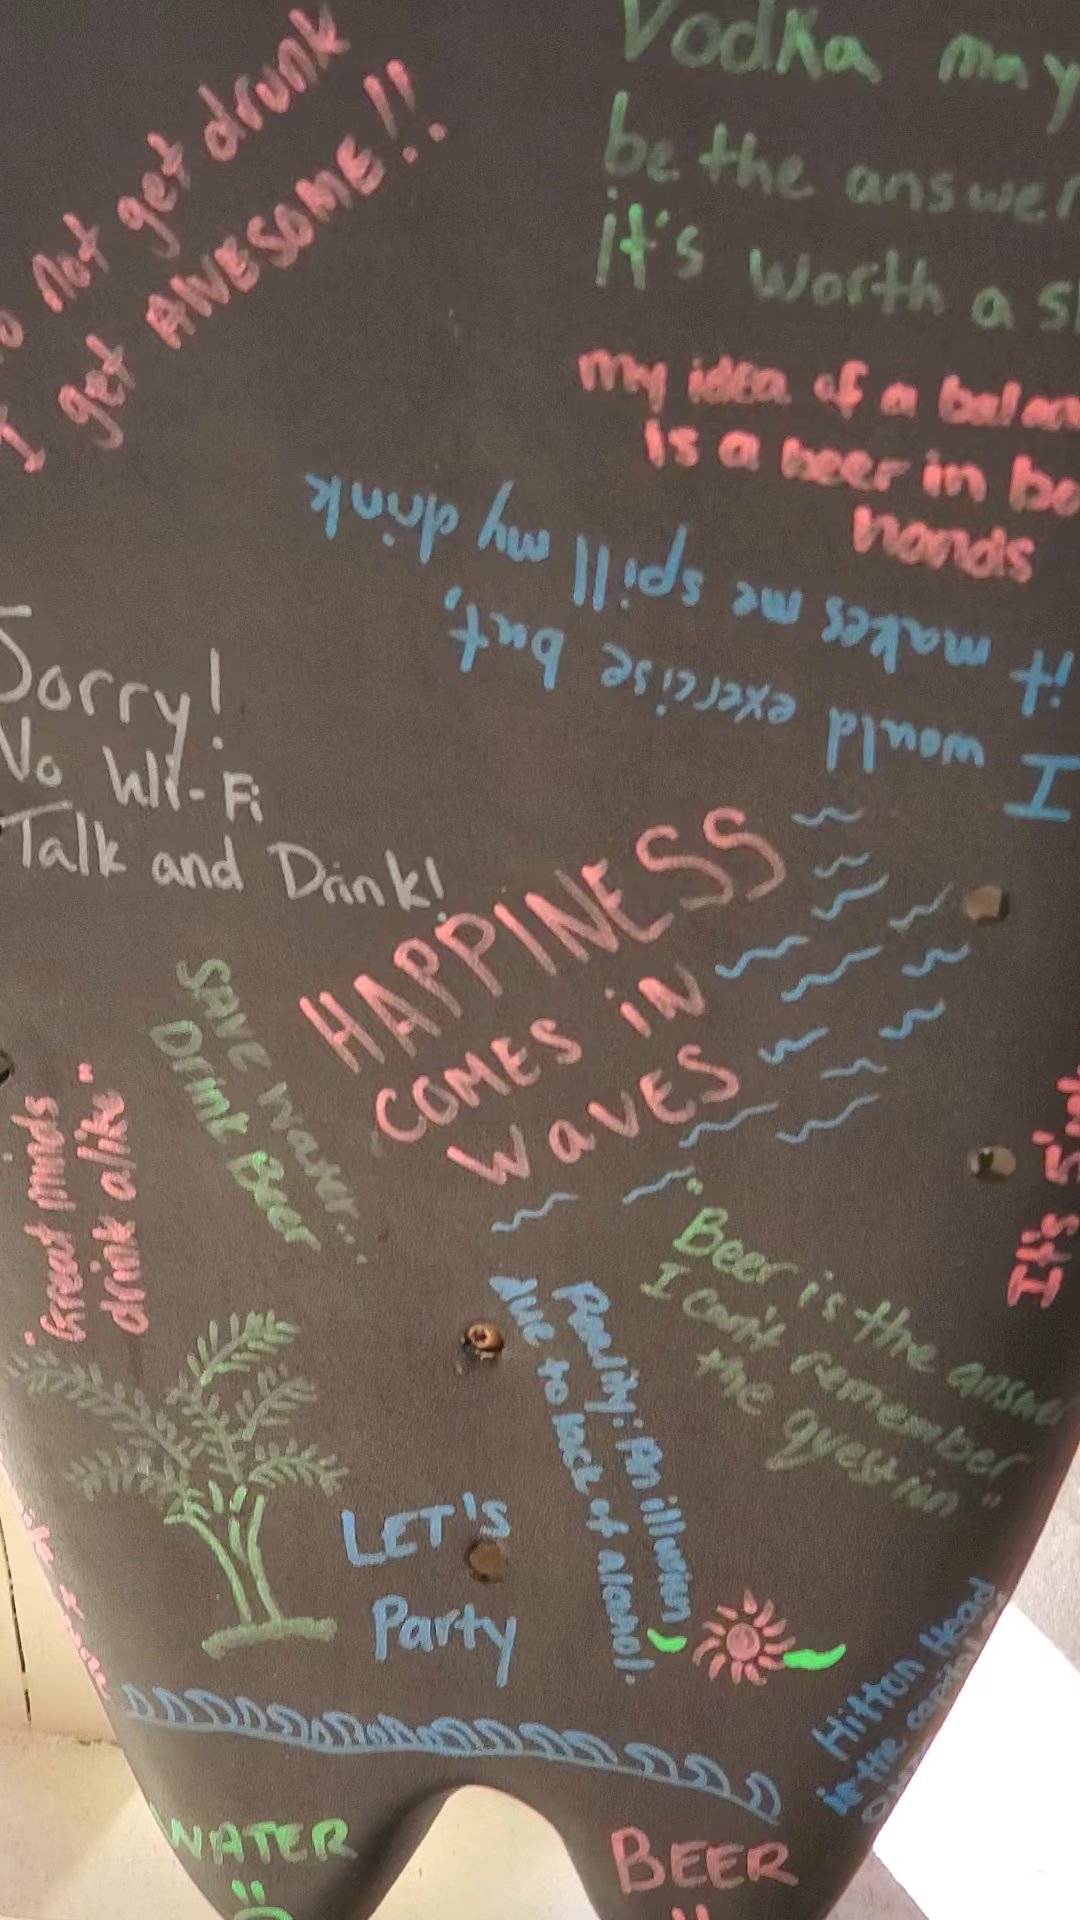 not get drunk
I get AWESOME!!
Vodka may
be the answer
it's worth a
my idea of a
is a beer in
hands
I would exercise but,
it makes me spill my drink
Sorry!
No Wi-Fi
Talk and Drink!
HAPPINESS
COMES iN
WaVES
SAVE Water...
Drink Beer
"Great minds
drink alike"
It's
"Beer is the
I can't remember
the question"
Reality: An illusion
due to lack of alcohol.
LET'S
Party
Hilton Head
is the
WATER
BEER